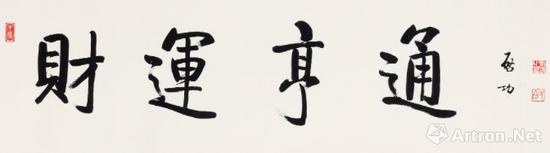 財運亨通
啟功
Artron.Net